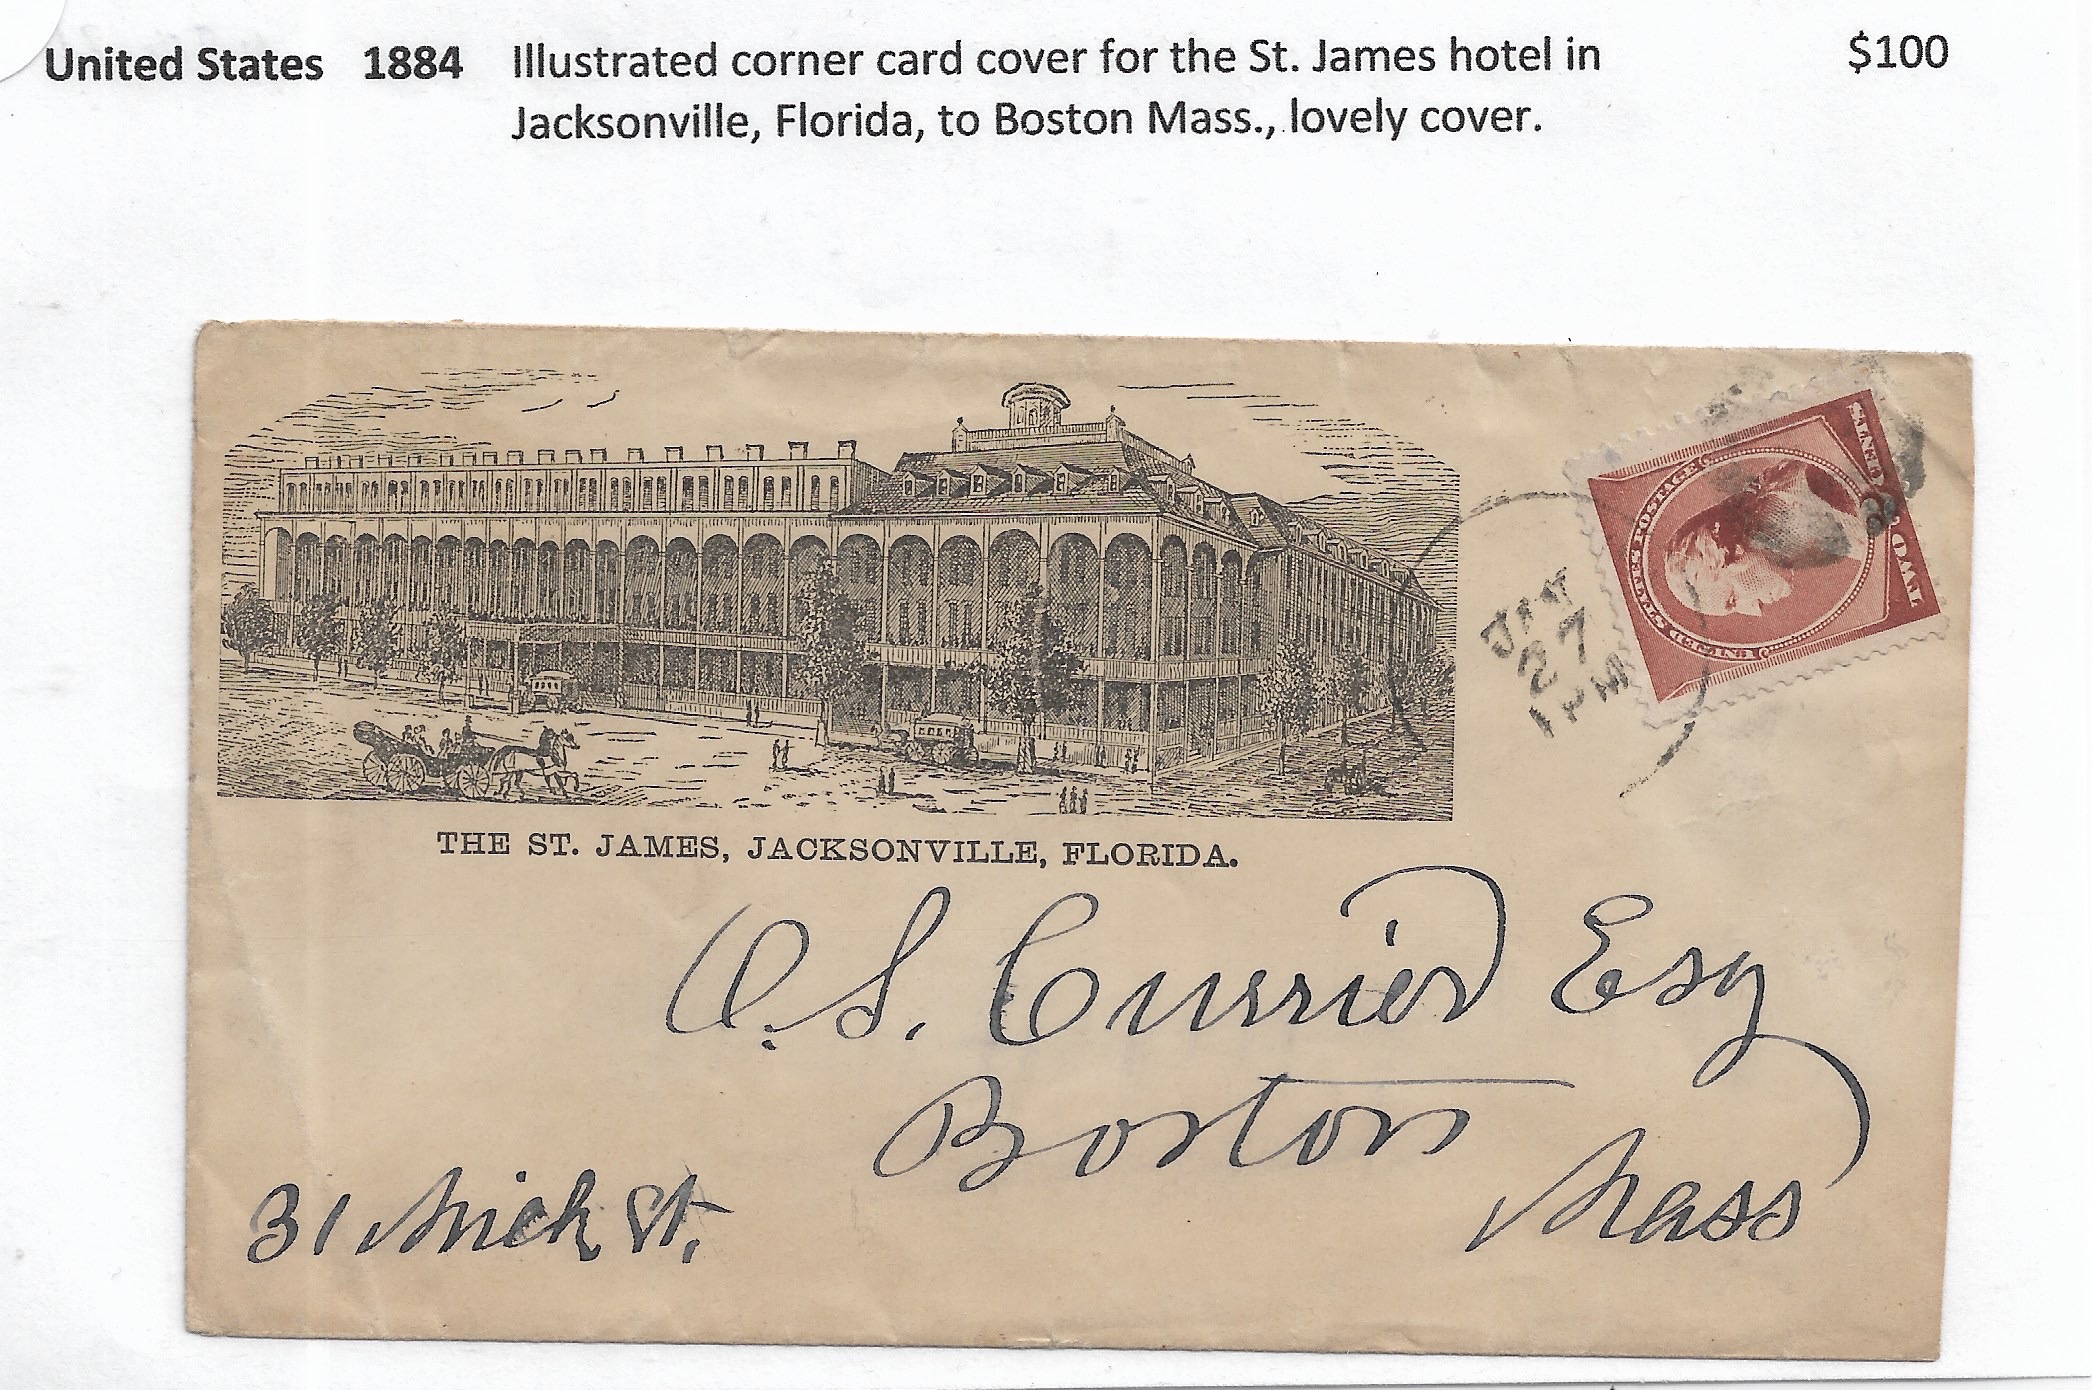 United States 1884 Illustrated corner card cover for the St. James hotel in $100
Jacksonville, Florida, to Boston Mass., lovely cover.
UNITED STATES POSTAGE
TWO CENTS
2
JAN
27
1 PM
THE ST. JAMES, JACKSONVILLE, FLORIDA.
O. S. Currier Esq
Boston
Mass
31 St.